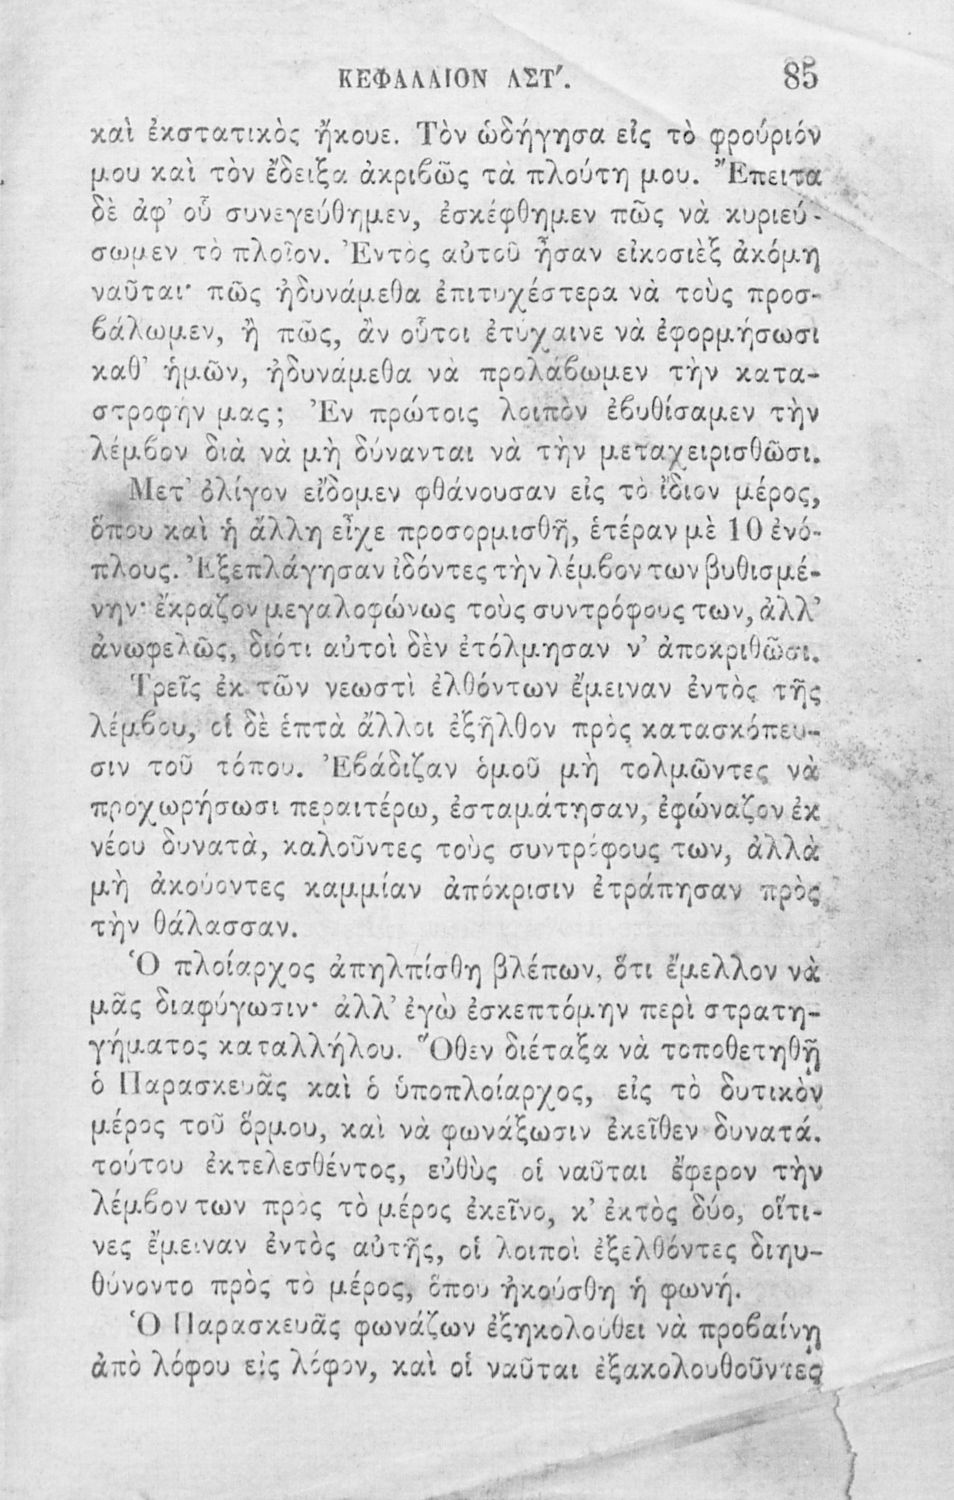 ΚΕΦΑΛΑΙΟΝ ΛΣΤʹ. 85
καὶ ἐκστατικὸς ἤκουε. Τὸν ὡδήγησα εἰς τὸ φρούριόν
μου καὶ τὸν ἔδειξα ἀκριβῶς τὰ πλούτη μου. Ἔπειτα
δὲ ἀφ’ οὗ συνεγεύθημεν, ἐσκέφθημεν πῶς νὰ κυριεύ-
σωμεν τὸ πλοῖον. Ἐντὸς αὐτοῦ ἦσαν εἰκοσιὲξ ἀκόμη
ναῦται· πῶς ἠδυνάμεθα ἐπιτυχέστερα νὰ τοὺς προσ-
βάλωμεν, ἢ πῶς, ἂν οὗτοι ἐτύχαινε νὰ ἐφορμήσωσι
καθ’ ἡμῶν, ἠδυνάμεθα νὰ προλάβωμεν τὴν κατα-
στροφήν μας; Ἐν πρώτοις λοιπὸν ἐβυθίσαμεν τὴν
λέμβον διὰ νὰ μὴ δύνανται νὰ τὴν μεταχειρισθῶσι.
Μετ’ ὀλίγον εἴδομεν φθάνουσαν εἰς τὸ ἴδιον μέρος,
ὅπου καὶ ἡ ἄλλη εἶχε προσορμισθῆ, ἑτέραν μὲ 10 ἐνό-
πλους. Ἐξεπλάγησαν ἰδόντες τὴν λέμβον των βυθισμέ-
νην· ἔκραζον μεγαλοφώνως τοὺς συντρόφους των, ἀλλ’
ἀνωφελῶς, διότι αὐτοὶ δὲν ἐτόλμησαν ν’ ἀποκριθῶσι.
Τρεῖς ἐκ τῶν νεωστὶ ἐλθόντων ἔμειναν ἐντὸς τῆς
λέμβου, οἱ δὲ ἑπτὰ ἄλλοι ἐξῆλθον πρὸς κατασκόπευ-
σιν τοῦ τόπου. Ἐβάδιζαν ὁμοῦ μὴ τολμῶντες νὰ
προχωρήσωσι περαιτέρω, ἐσταμάτησαν, ἐφώναζον ἐκ
νέου δυνατὰ, καλοῦντες τοὺς συντρόφους των, ἀλλὰ
μὴ ἀκούοντες καμμίαν ἀπόκρισιν ἐτράπησαν πρὸς
τὴν θάλασσαν.
Ὁ πλοίαρχος ἀπηλπίσθη βλέπων, ὅτι ἔμελλον νὰ
μᾶς διαφύγωσιν· ἀλλ’ ἐγὼ ἐσκεπτόμην περὶ στρατη-
γήματος καταλλήλου. Ὅθεν διέταξα νὰ τοποθετηθῇ
ὁ Παρασκευᾶς καὶ ὁ ὑποπλοίαρχος, εἰς τὸ δυτικὸν
μέρος τοῦ ὅρμου, καὶ νὰ φωνάξωσιν ἐκεῖθεν δυνατά.
τούτου ἐκτελεσθέντος, εὐθὺς οἱ ναῦται ἔφερον τὴν
λέμβον των πρὸς τὸ μέρος ἐκεῖνο, κ’ ἐκτὸς δύο, οἵτι-
νες ἔμειναν ἐντὸς αὐτῆς, οἱ λοιποὶ ἐξελθόντες διηυ-
θύνοντο πρὸς τὸ μέρος, ὅπου ἠκούσθη ἡ φωνή.
Ὁ Παρασκευᾶς φωνάζων ἐξηκολούθει νὰ προβαίνῃ
ἀπὸ λόφου εἰς λόφον, καὶ οἱ ναῦται ἐξακολουθοῦντες